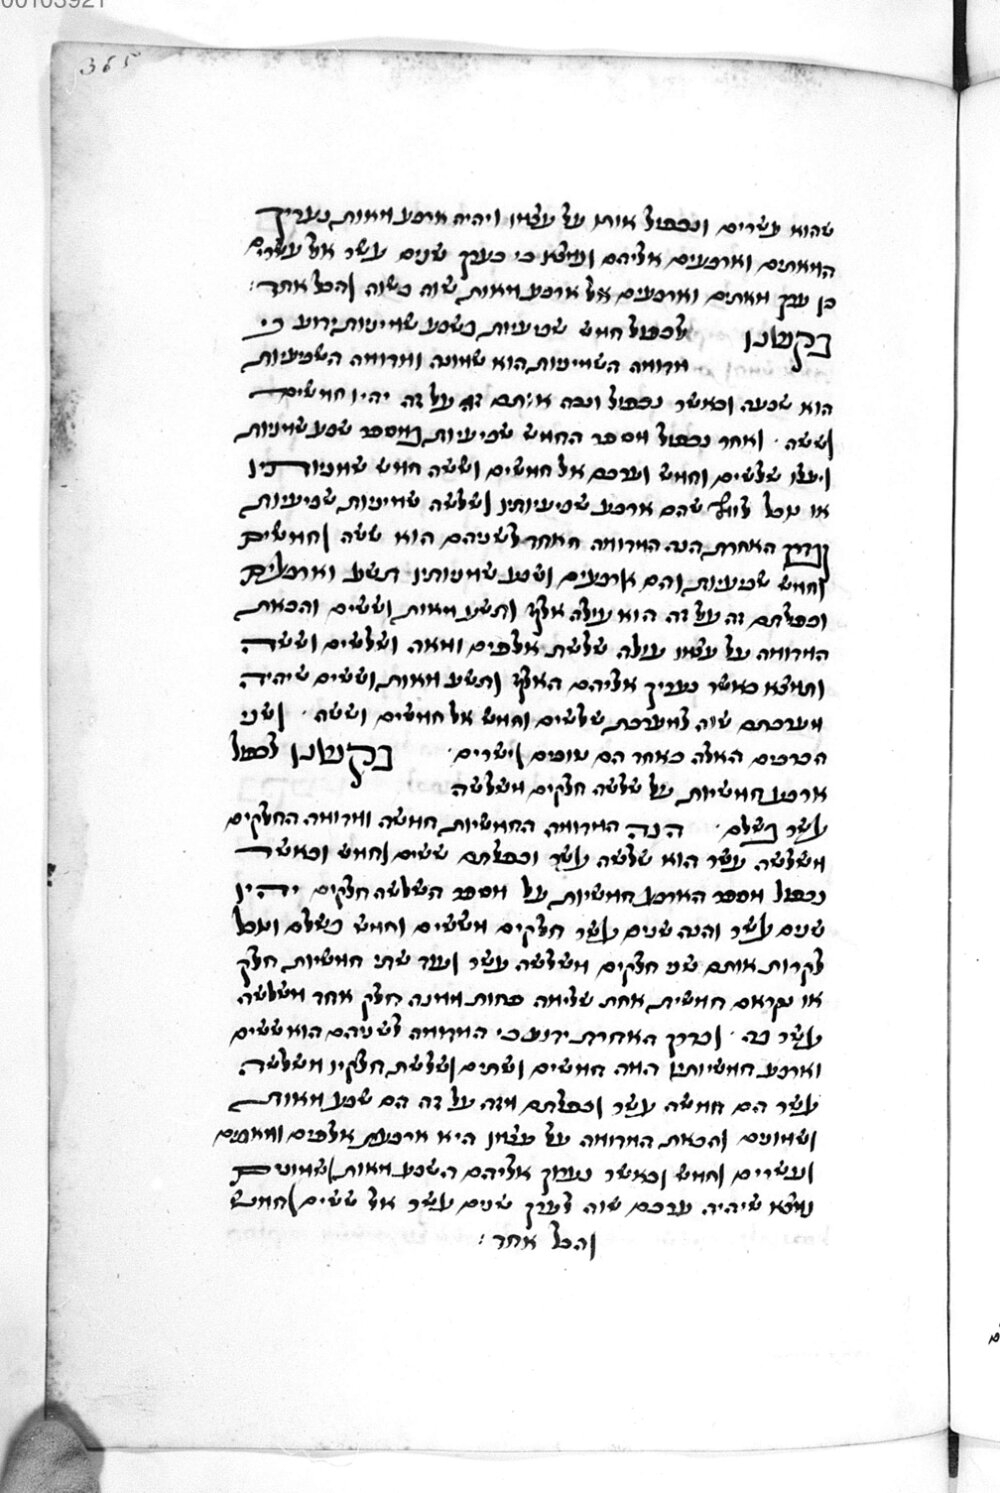 00103921
365
שהוא עשרים ונכפול אותו על עצמו ויהיה ארבע מאות נעריך
המאתים וארבעים אליהם ונמצא כי כערך שנים עשר אל עשרים
כן ערך מאתים וארבעים אל ארבע מאות שוה בשוה והכל אחד:
בקשנו לכפול חמש שביעיות בשבע שמיניות ידוע כי
מדומה השמיניות הוא שמונה ומדומה השביעיות
הוא שבעה וכאשר נכפול ונכה אותם זה על זה יהיו חמישים
וששה ׳ ואחר נכפול מספר החמש שביעיות במספר שבע שמיניות
ויעלו שלשים וחמש וערכם אל חמשים וששה חמש שמניותיו
או נוכל לומ׳ שהם ארבע שביעיותיו ושלשה שמיניות שביעיות
ובדרך האחרת הנה המדומה האחד לשניהם הוא ששה וחמשים
וחמש שביעיות והם ארבעים ושבע שמיניותיו תשע וארבעים
וכפלתם זה על זה הוא עולה אלף ותשע מאות וששים והכאת
המדומה על עצמו עולה שלשת אלפים ומאה ושלשים וששה
ותמצא כאשר נעריך אליהם האלף ותשע מאות וששים שיהיה
מערכתם שוה למערכת שלשים וחמש אל חמשים וששה ׳ ושני
הדרכים האלה כאחד הם טובים וישרים ׳ בקשנו לכפול
ארבע חמשיות על שלשה חלקים משלשה
עשר בשלם ׳ הנה המדומה החמשיות חמשה ומדומה החלקים
משלשה עשר הוא שלשה עשר וכפלתם ששים וחמש וכאשר
נכפול מספר הארבע חמשיות על מספר השלשה חלקים יהיו
שנים עשר והנה שנים עשר חלקים מששים וחמש בשלם ונוכל
לקרות אותם שני חלקים משלשה עשר ועוד שתי חמשיות חלק
או נקראם חמשית אחת שלימה פחות ממנה חלק אחד משלשה
עשר בה ׳ ובדרך האחרת ידוע כי המדומה לשניהם הוא ששים
וארבע חמשיותיו המה חמשים ושתים ושלשת חלקיו משלשה
עשר הם חמשה עשר וכפלתם מזה על זה הם שבע מאות
ושמונים והכאת המדומה על עצמו היא ארבעת אלפים ומאתים
ועשרים וחמש וכאשר נערוך אליהם השבע מאות ושמונים
נמצא שיהיה ערכם שוה לערך שנים עשר אל ששים וחמש
והכל אחד: